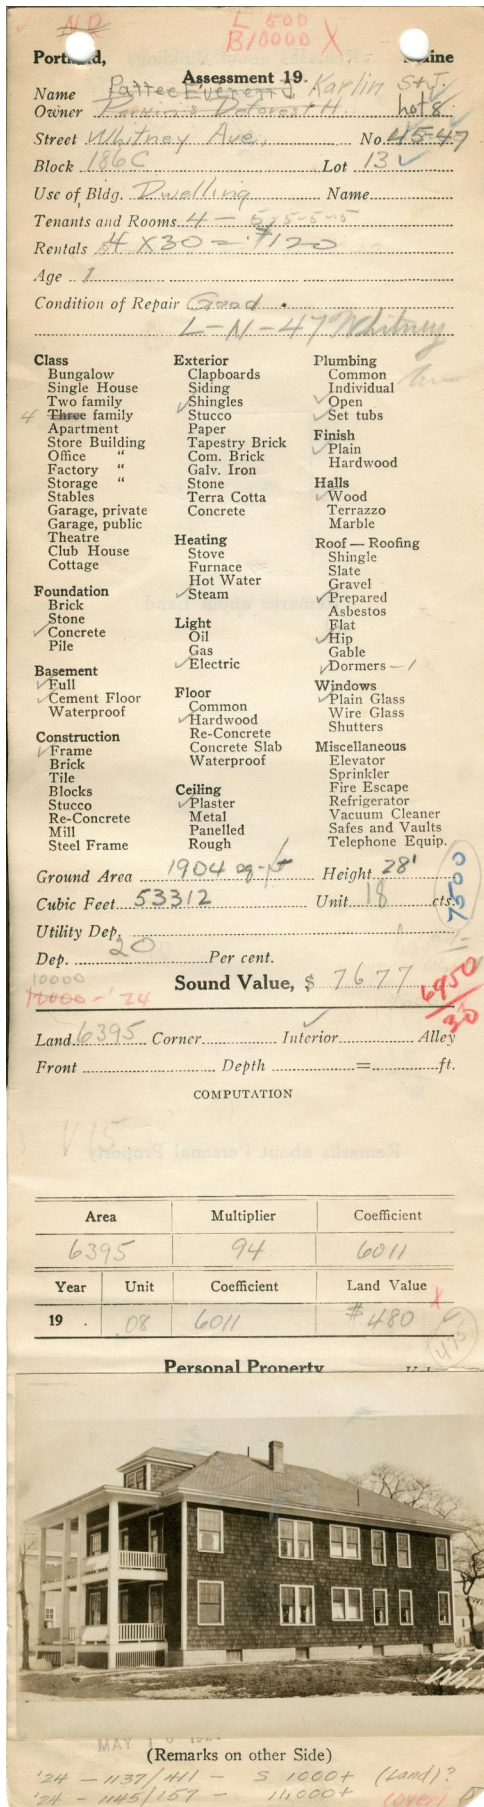 ND
L 500
B10000 X
Portland, Maine
Assessment 19.
Name Pattee Everett J. Karlin S+J.
Owner Parkin's Deforest H. Lot 8.
Street Whitney Ave., No. 45-47
Block 186C Lot 13
Use of Bldg. Dwelling Name
Tenants and Rooms 4 - 5-5-5-5
Rentals 4 X 30 = $120
Age 1
Condition of Repair Good.
L-N-47 Whitney Ave
Class
Bungalow
Single House
Two family
4 Three family
Apartment
Store Building
Office "
Factory "
Storage "
Stables
Garage, private
Garage, public
Theatre
Club House
Cottage
Foundation
Brick
Stone
✓Concrete
Pile
Basement
✓Full
✓Cement Floor
Waterproof
Construction
✓Frame
Brick
Tile
Blocks
Stucco
Re-Concrete
Mill
Steel Frame
Exterior
Clapboards
Siding
✓Shingles
Stucco
Paper
Tapestry Brick
Com. Brick
Galv. Iron
Stone
Terra Cotta
Concrete
Heating
Stove
Furnace
Hot Water
✓Steam
Light
Oil
Gas
✓Electric
Floor
Common
✓Hardwood
Re-Concrete
Concrete Slab
Waterproof
Ceiling
✓Plaster
Metal
Panelled
Rough
Plumbing
Common
Individual
✓Open
✓Set tubs
Finish
✓Plain
Hardwood
Halls
✓Wood
Terrazzo
Marble
Roof — Roofing
Shingle
Slate
Gravel
✓Prepared
Asbestos
Flat
✓Hip
Gable
✓Dormers - 1
Windows
✓Plain Glass
Wire Glass
Shutters
Miscellaneous
Elevator
Sprinkler
Fire Escape
Refrigerator
Vacuum Cleaner
Safes and Vaults
Telephone Equip.
Ground Area 1904 sq-ft Height 28'
Cubic Feet 53312 Unit 18 cts.
7500
Utility Dep.
Dep. 20 Per cent.
10000
12000 - '24
Sound Value, $ 7677
6950/30
Land 6395 Corner Interior ✓ Alley
Front Depth = ft.
COMPUTATION
V15
Area Multiplier Coefficient
6395 94 6011
Year Unit Coefficient Land Value
19 . .08 6011 $480 X
475
Personal Property
MAY 1
(Remarks on other Side)
'24 - 1137/411 - S 1000+ (Land)?
'24 - 1145/157 - 11,000+ (over)